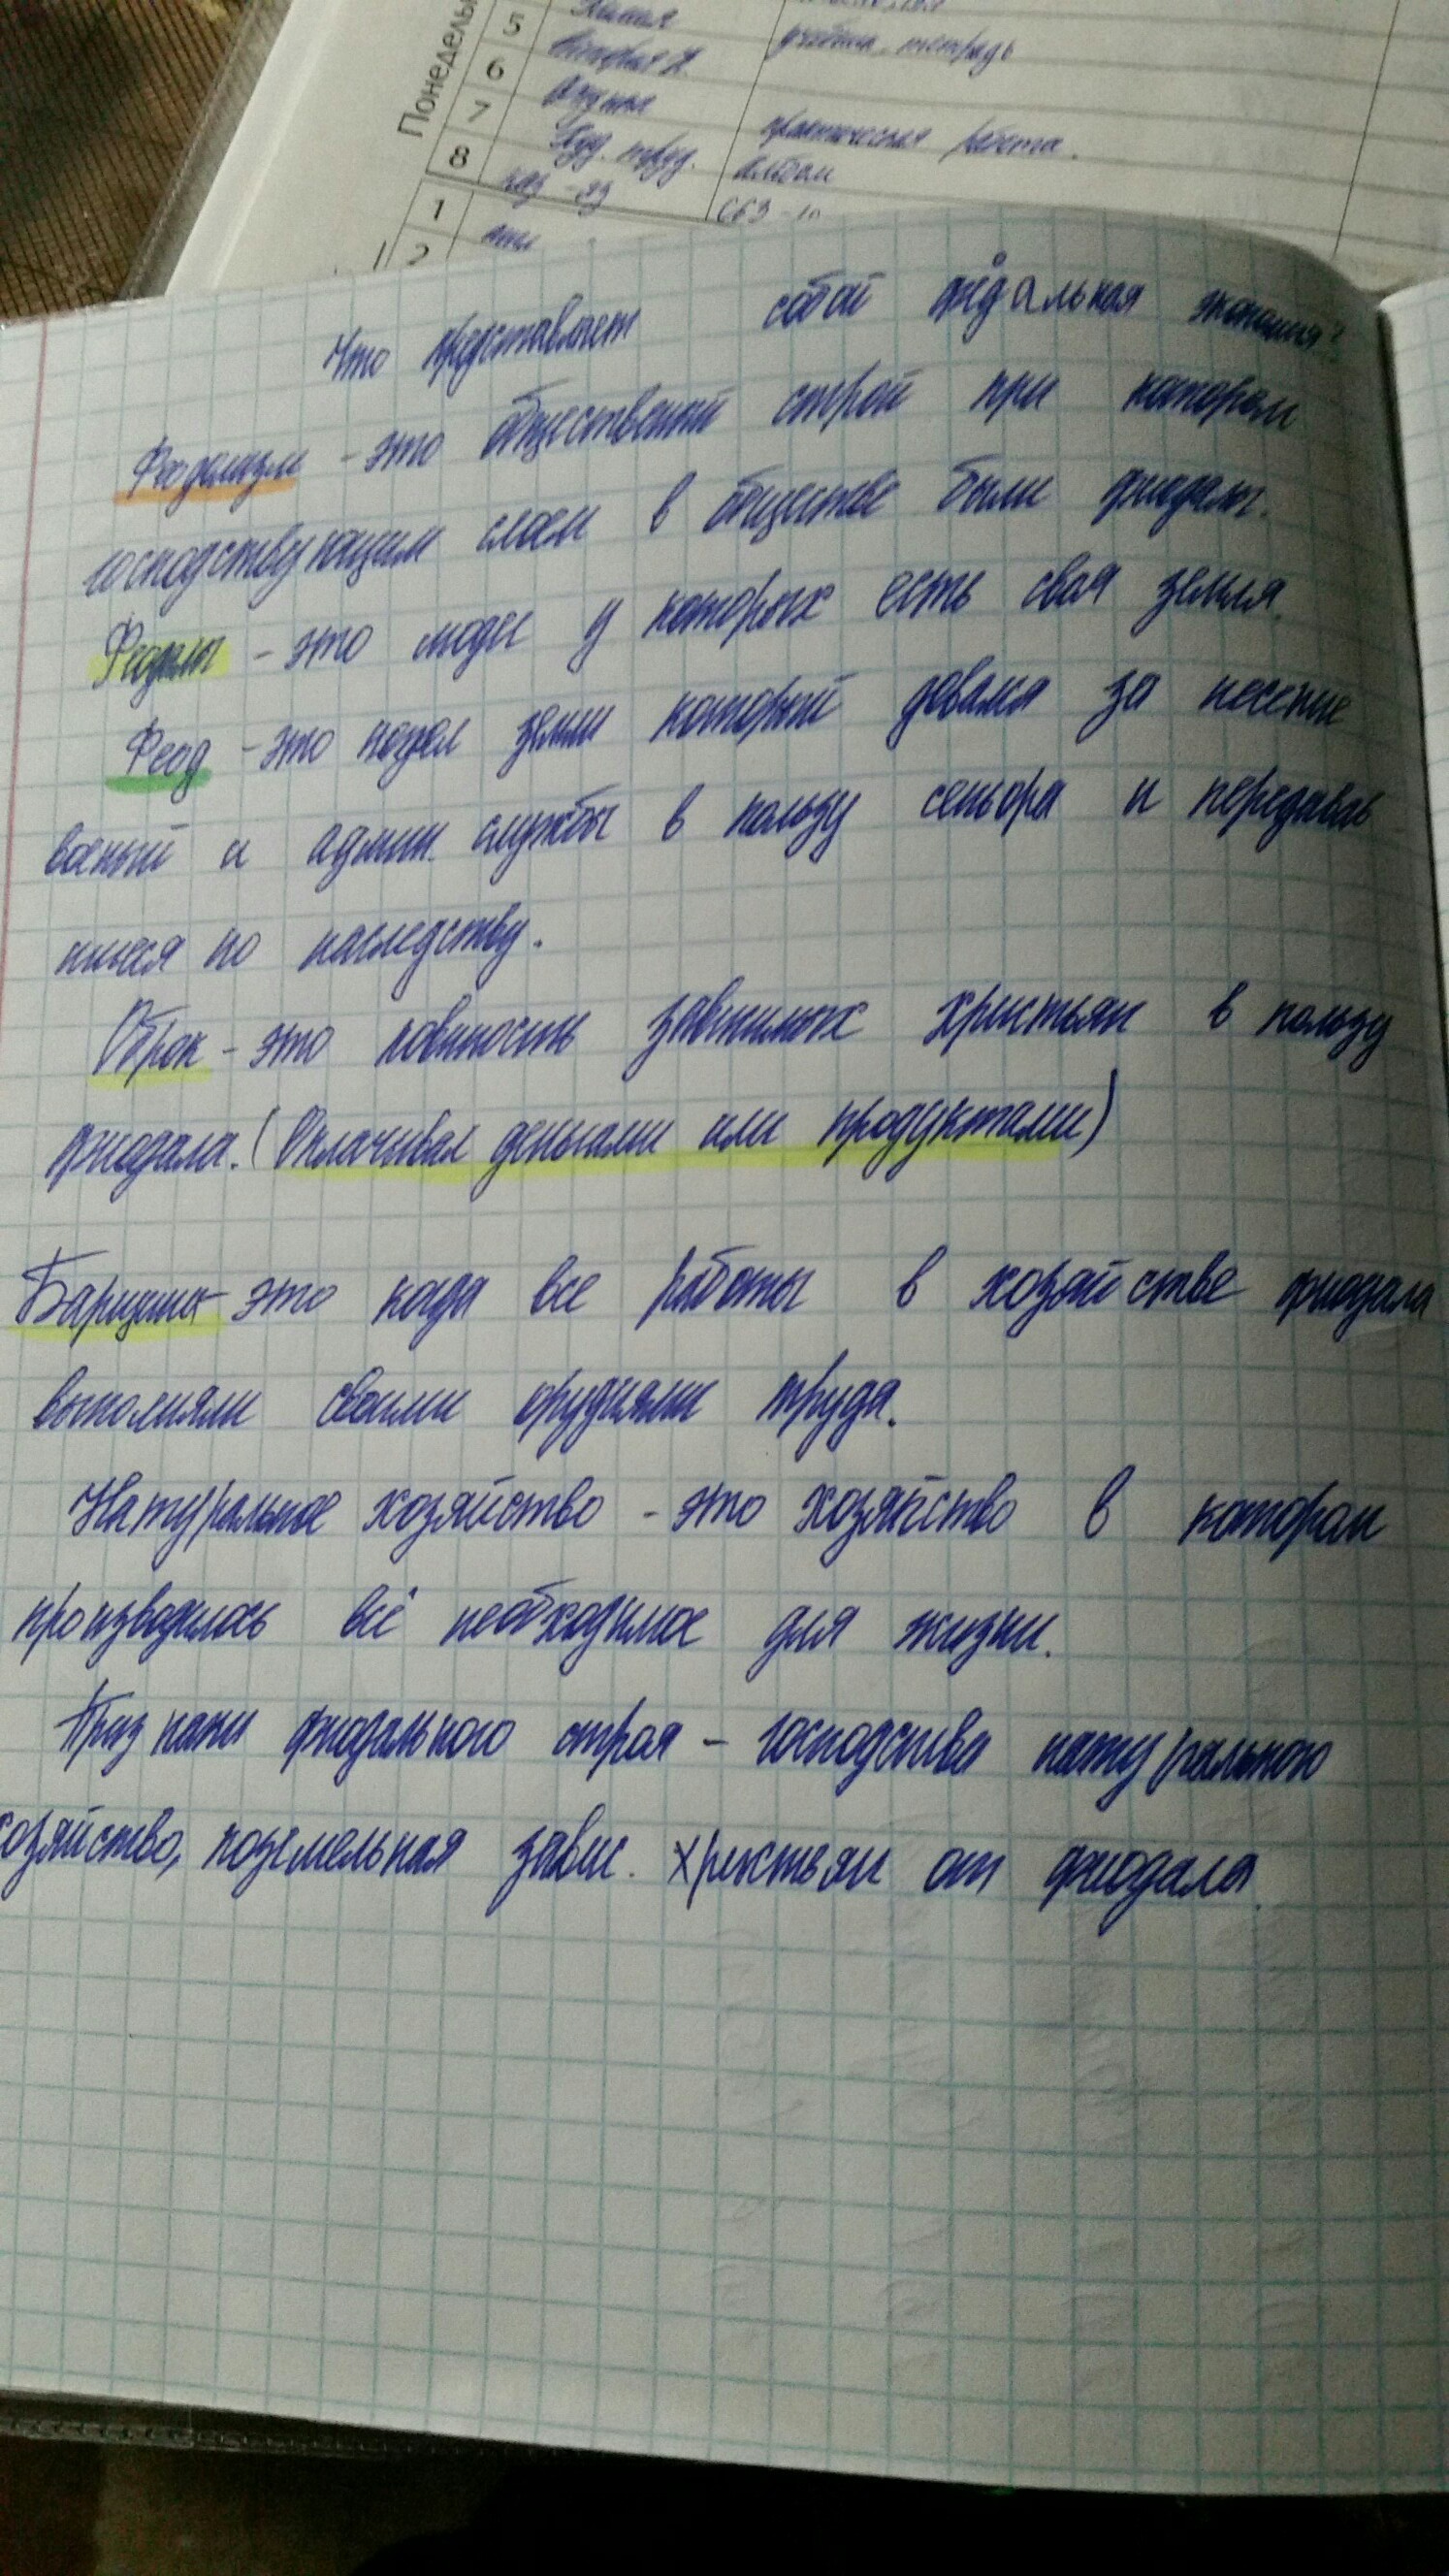 Понедель
5 Химия
6 учебник, тетрадь
7
8 Худ. труд. практическая работа.
каз-яз Альбом
1
2
Что представляет собой фідальная экономия?
Феодализм - это общественый строй при котором
господствующим слоем в обществе были фиодалы.
Феодалы - это люди у которых есть своя земля.
Феод - это надел земли который довался за несение
военый и админ. службы в пользу сеньора и передавав
шийся по наследству.
Оброк - это повиность зависимых христьян в пользу
фиодала. (Оплачивал деньгами или продуктами)
Барщина - это когда все работы в хозяйстве фиодала
выполняли своими орудиями труда.
Натуральное хозяйство - это хозяйство в котором
производилось всё необходимое для жизни.
Признаки фиодального строя - господства натурального
хозяйство, поземельная завис. христьян от фиодала.